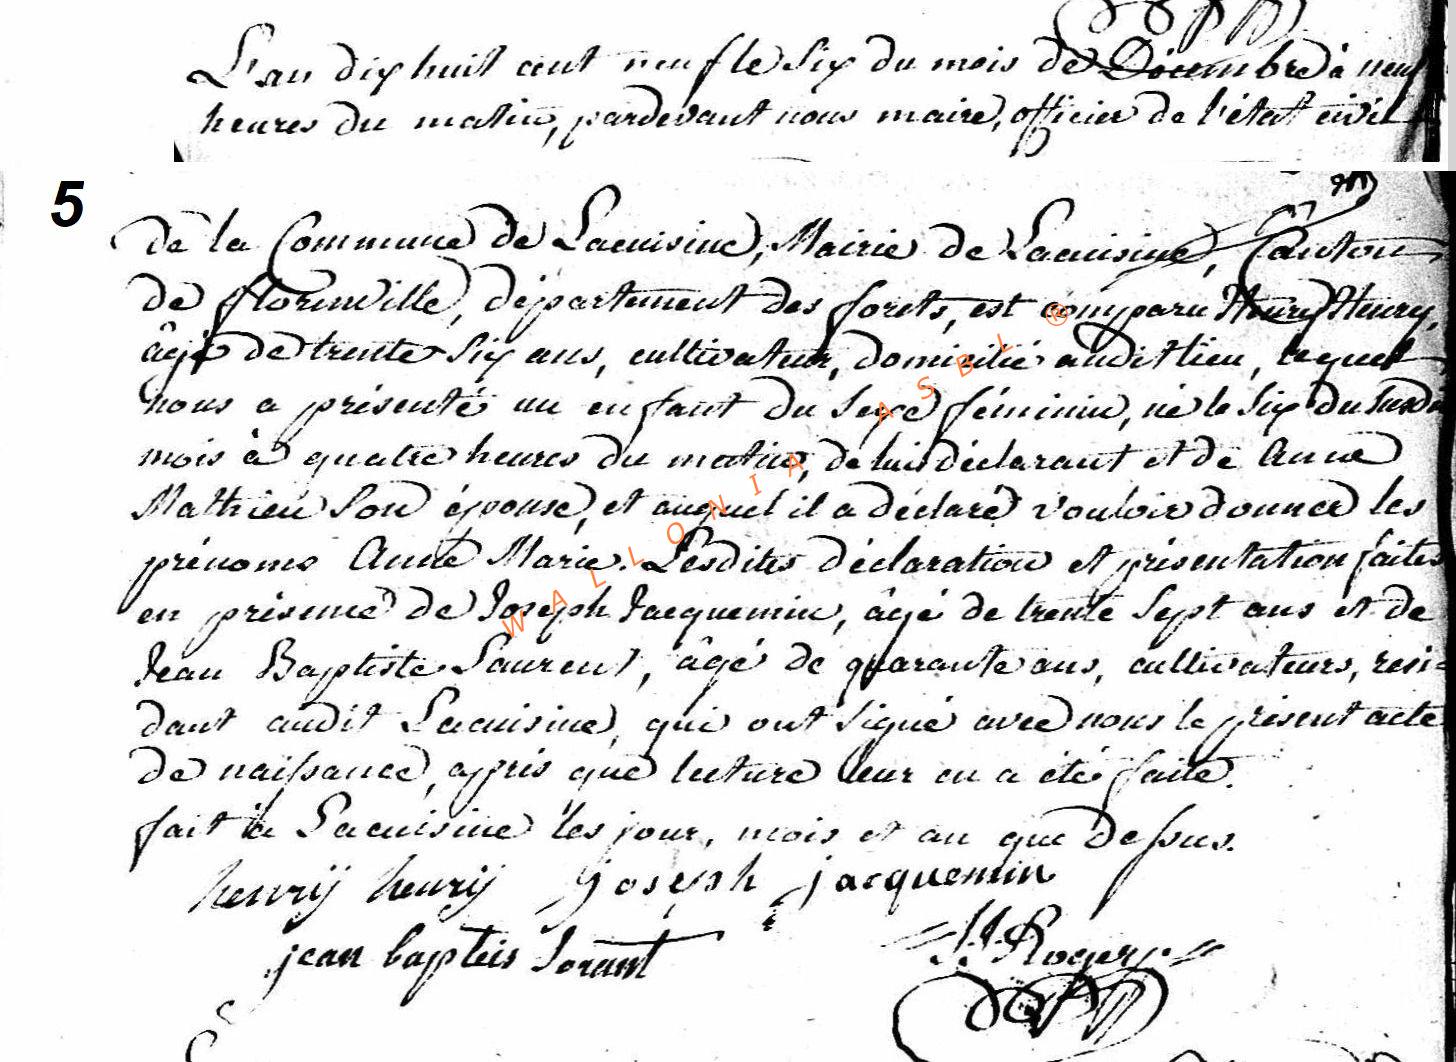 L'an dix huit cent neuf le six du mois de Décembre à neuf
heures du matin, pardevant nous maire, officier de l'état civil
5
de la Commune de Lacuisine, Mairie de Lacuisine, Canton
de florenville, département des forets, est comparu Henry Henry,
âgé de trente six ans, cultivateur, domicilié audit lieu, lequel
nous a présenté un enfant du sexe féminin, né le six du susdit
mois à quatre heures du matin, de lui déclarant et de Anne
Mathieu son épouse, et auquel il a déclaré vouloir donner les
prénoms Anne Marie. Lesdites déclaration et présentation faites
en présence de Joseph Jacquemin, âgé de trente sept ans et de
Jean Baptiste Laurent, âgé de quarante ans, cultivateurs, rési=
dant audit Lacuisine, qui ont signé avec nous le présent acte
de naissance, après que lecture leur en a été faite.
fait à Lacuisine les jour, mois et an que dessus.
henrij henrij joseph jacquemin
jean baptis lorant
Rogery
WALLONIA ASBL ®